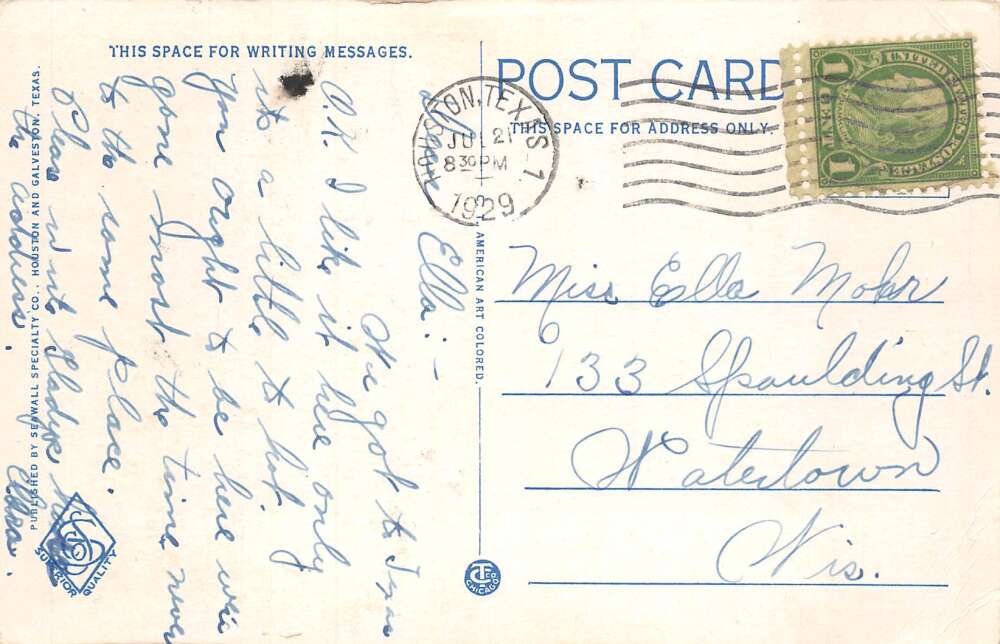 THIS SPACE FOR WRITING MESSAGES.
POST CARD
THIS SPACE FOR ADDRESS ONLY.
HOUSTON, TEXAS 1
JUL 21
8 30 PM
1929
UNITED STATES POSTAGE
1 CENT 1
Ella: -
We got to Texas
O.K. I like it here only
its a little to hot.
You ought to be here wie
gone most the time never
to the same place.
Please write Gladys
the address.
Miss Ella Mohr
633 Spaulding St.
Watertown
Wis.
PUBLISHED BY SEAWALL SPECIALTY CO., HOUSTON AND GALVESTON, TEXAS.
AMERICAN ART COLORED.
SUPERIOR QUALITY
CT CO. CHICAGO